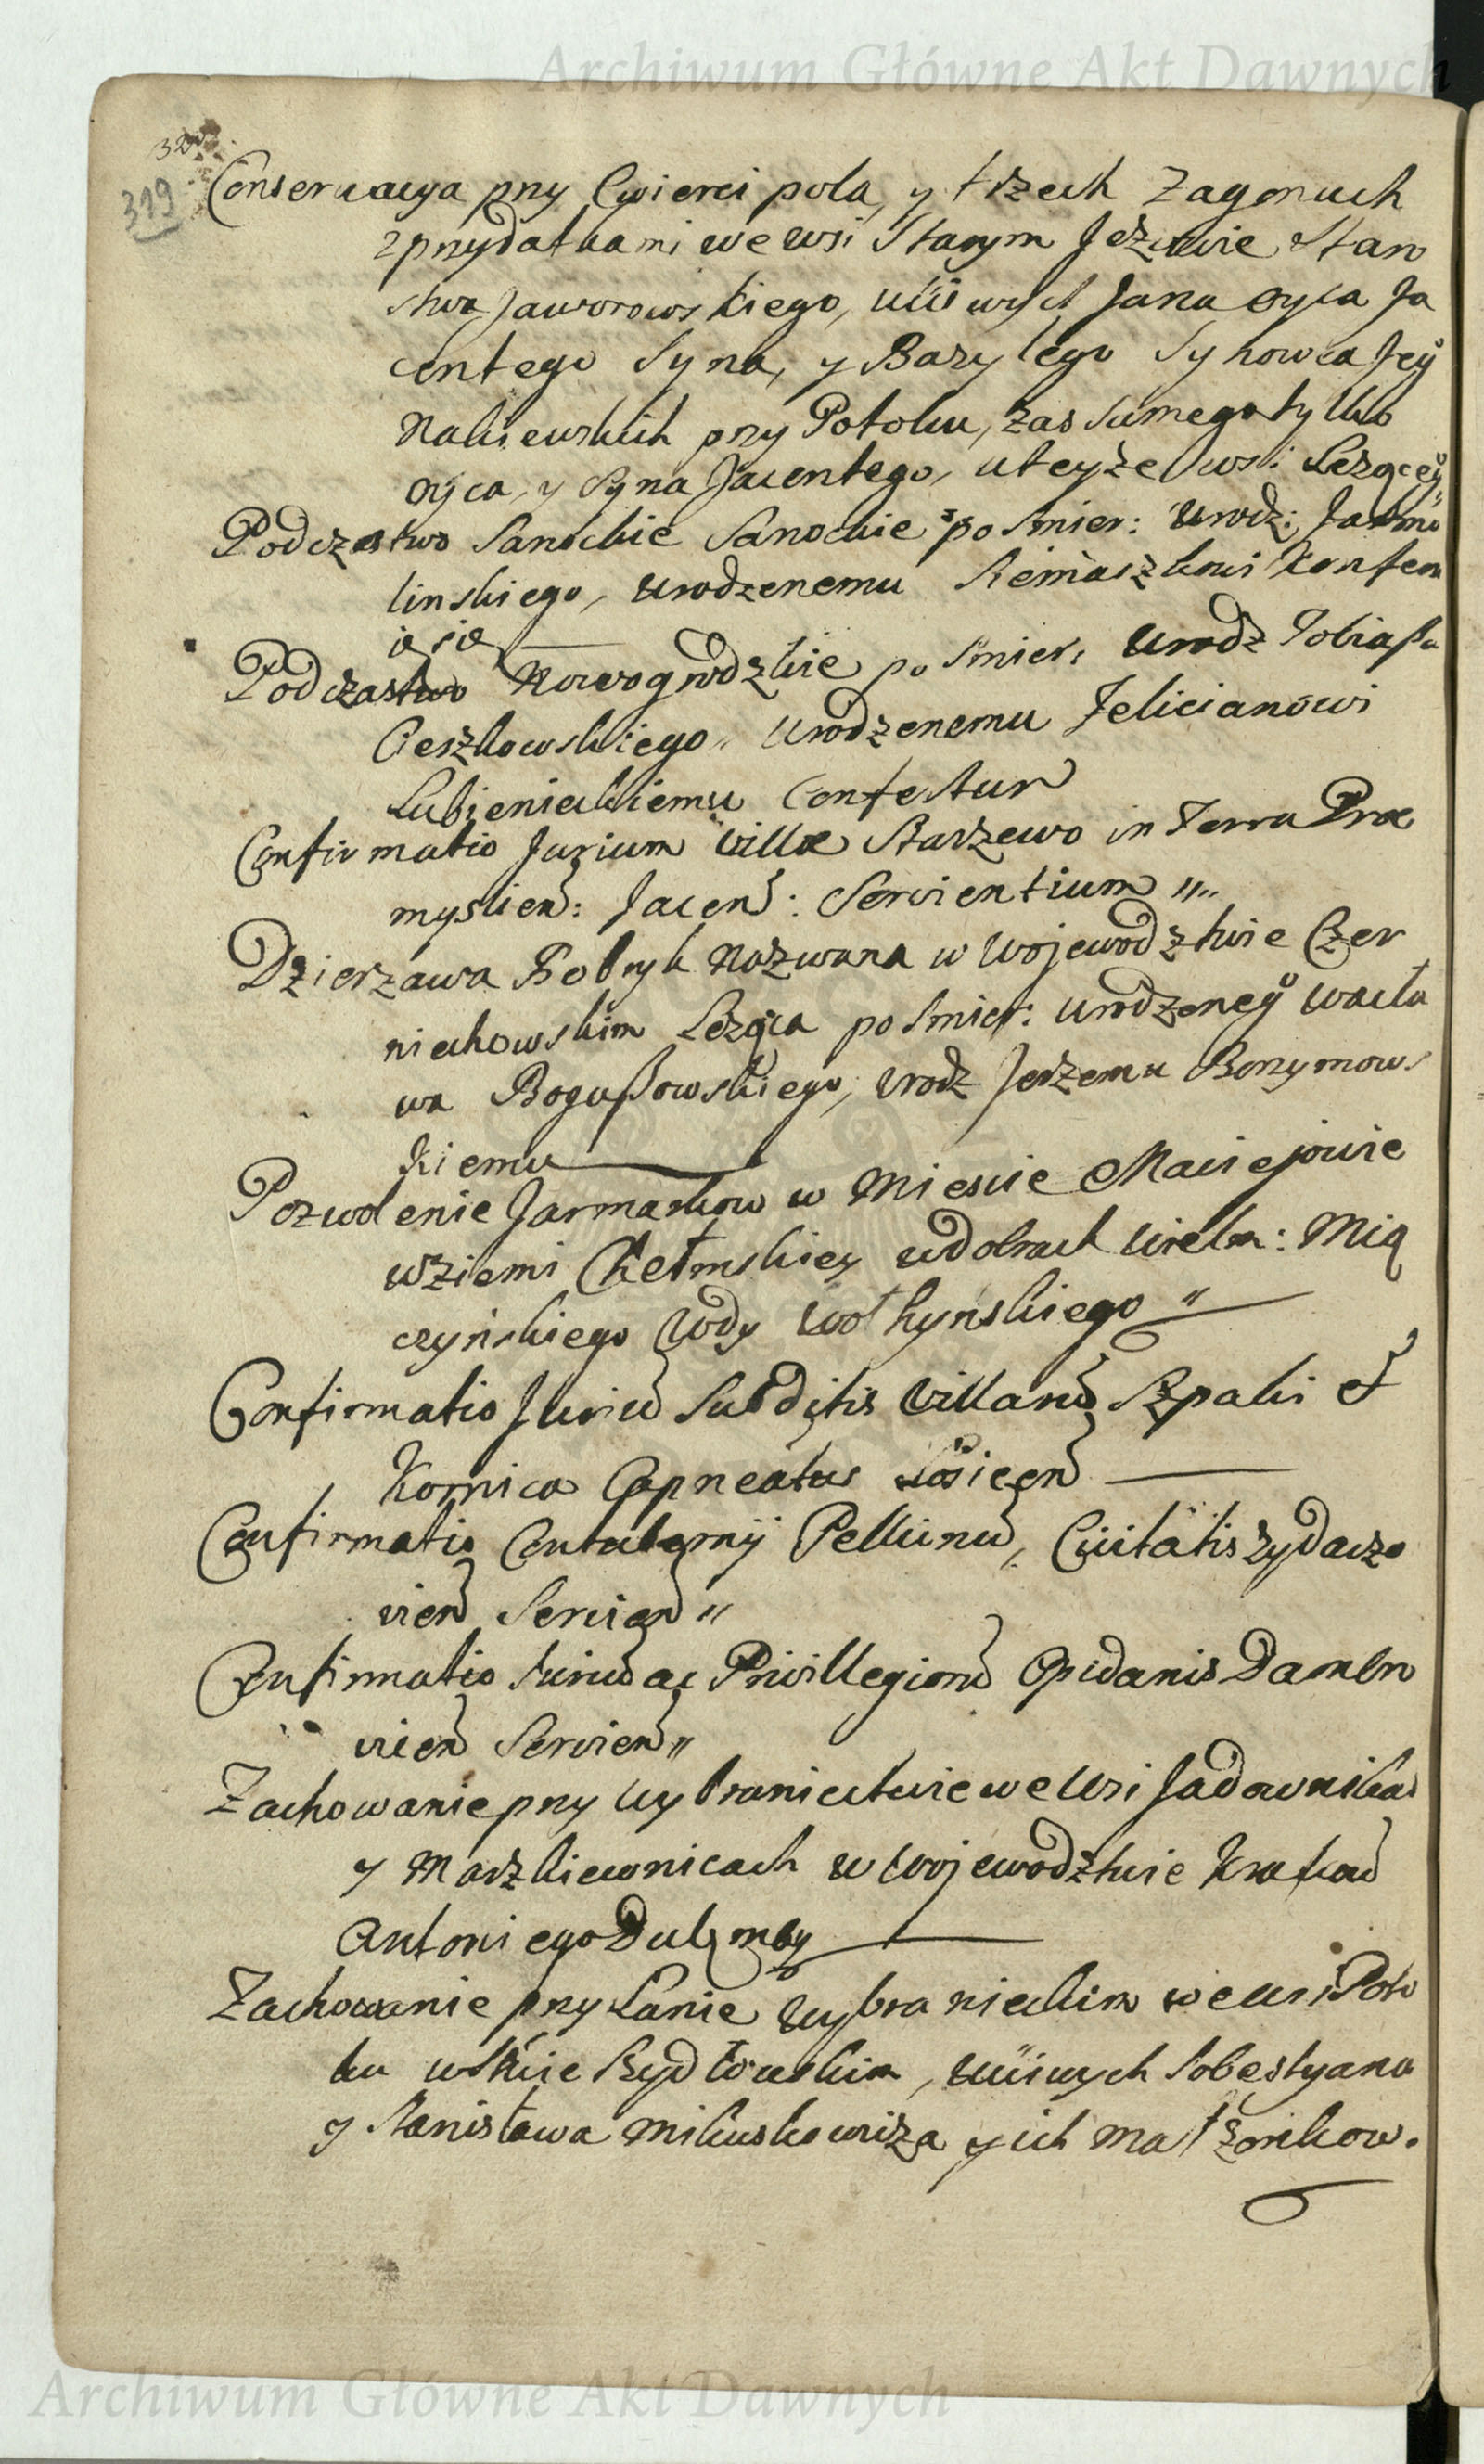 Archiwum Główne Akt Dawnych
320
319
Conserwacya przy Cwierci pola, y trzech Zagonach
z przydatkami we wsi Starym Jeżowie Staro
stwa Jaworowskiego, Ucciwych Jana oyca Ja
centego Syna, y Bazylego Synowca Jeg°
Naliewskich przy Potoku, zas samego tylko
Oyca, y Syna Jacentego, w teyże wsi Leżącey
Podczastwo Sanockie Sanockie po Smier: Urodz: Jarmo
linskiego, Urodzenemu Remaszkowi Konferu
ie się
Podczastwo Nowogrodzkie po Smier: Urodz Tobiasza
Cieszkowskiego, Urodzenemu Felicianowi
Lubienieckiemu Confertur
Confirmatio Jurium Villæ Starzewo in Terra Præ
myslien: Jacen: Servientium
Dzierzawa Bobryk Nazwana w Wojewodztwie Czer
niechowskim Leżąca po Smier: Urodzoneg° Wacła
wa Boguszowskiego, Urodz Jerzemu Borzymows
kiemu
Pozwolenie Jarmarkow w Miescie Maciejowie
w Ziemi Chełmskiey w dobrach Wielm: Mią
czyńskiego Wdy Wołhynskiego
Confirmatio Juriū Subditis Villarū Szpaki et
Kornica Capneatus Łosicen
Confirmatio Contubernij Pellionū, Civitatis Zydaczo
vien Servien
Confirmatio Juriū ac Privillegiorū Opidanis Dambro
vien Servien
Zachowanie przy Wybraniectwie we Wsi Jadownikach
y Marzkiewnicach w Wojewodztwie Krakow
Antoniego Dulemby
Zachowanie przy Łanie Wybranieckim we wsi Poto
ku w Stwie Szydłowskim, Ucciwych Sobestyana
y Stanisława Mikuskowicza y ich Małżonkow.
Archiwum Główne Akt Dawnych